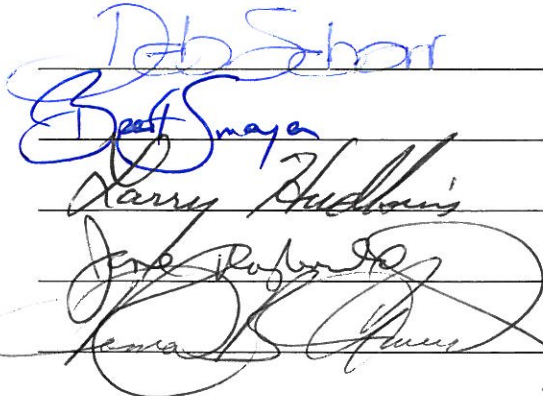 Deb Schorr
Brent Smoyer
Larry Hudkins
Jane Raybould
Roma B